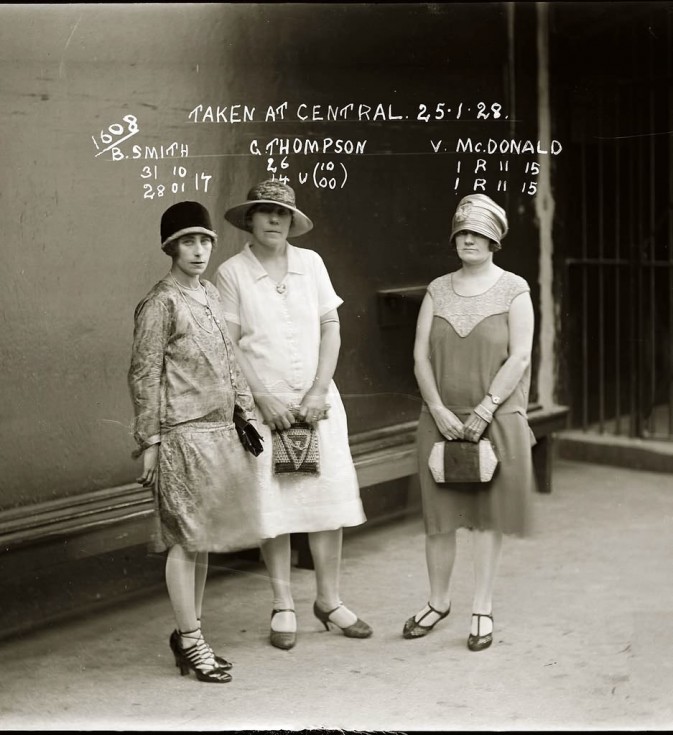 TAKEN AT CENTRAL. 25·1·28.
1608
B. SMITH
31 10
28 01 17
G. THOMPSON
26 (10
14 U 00)
V. McDONALD
1 R 11 15
1 R 11 15